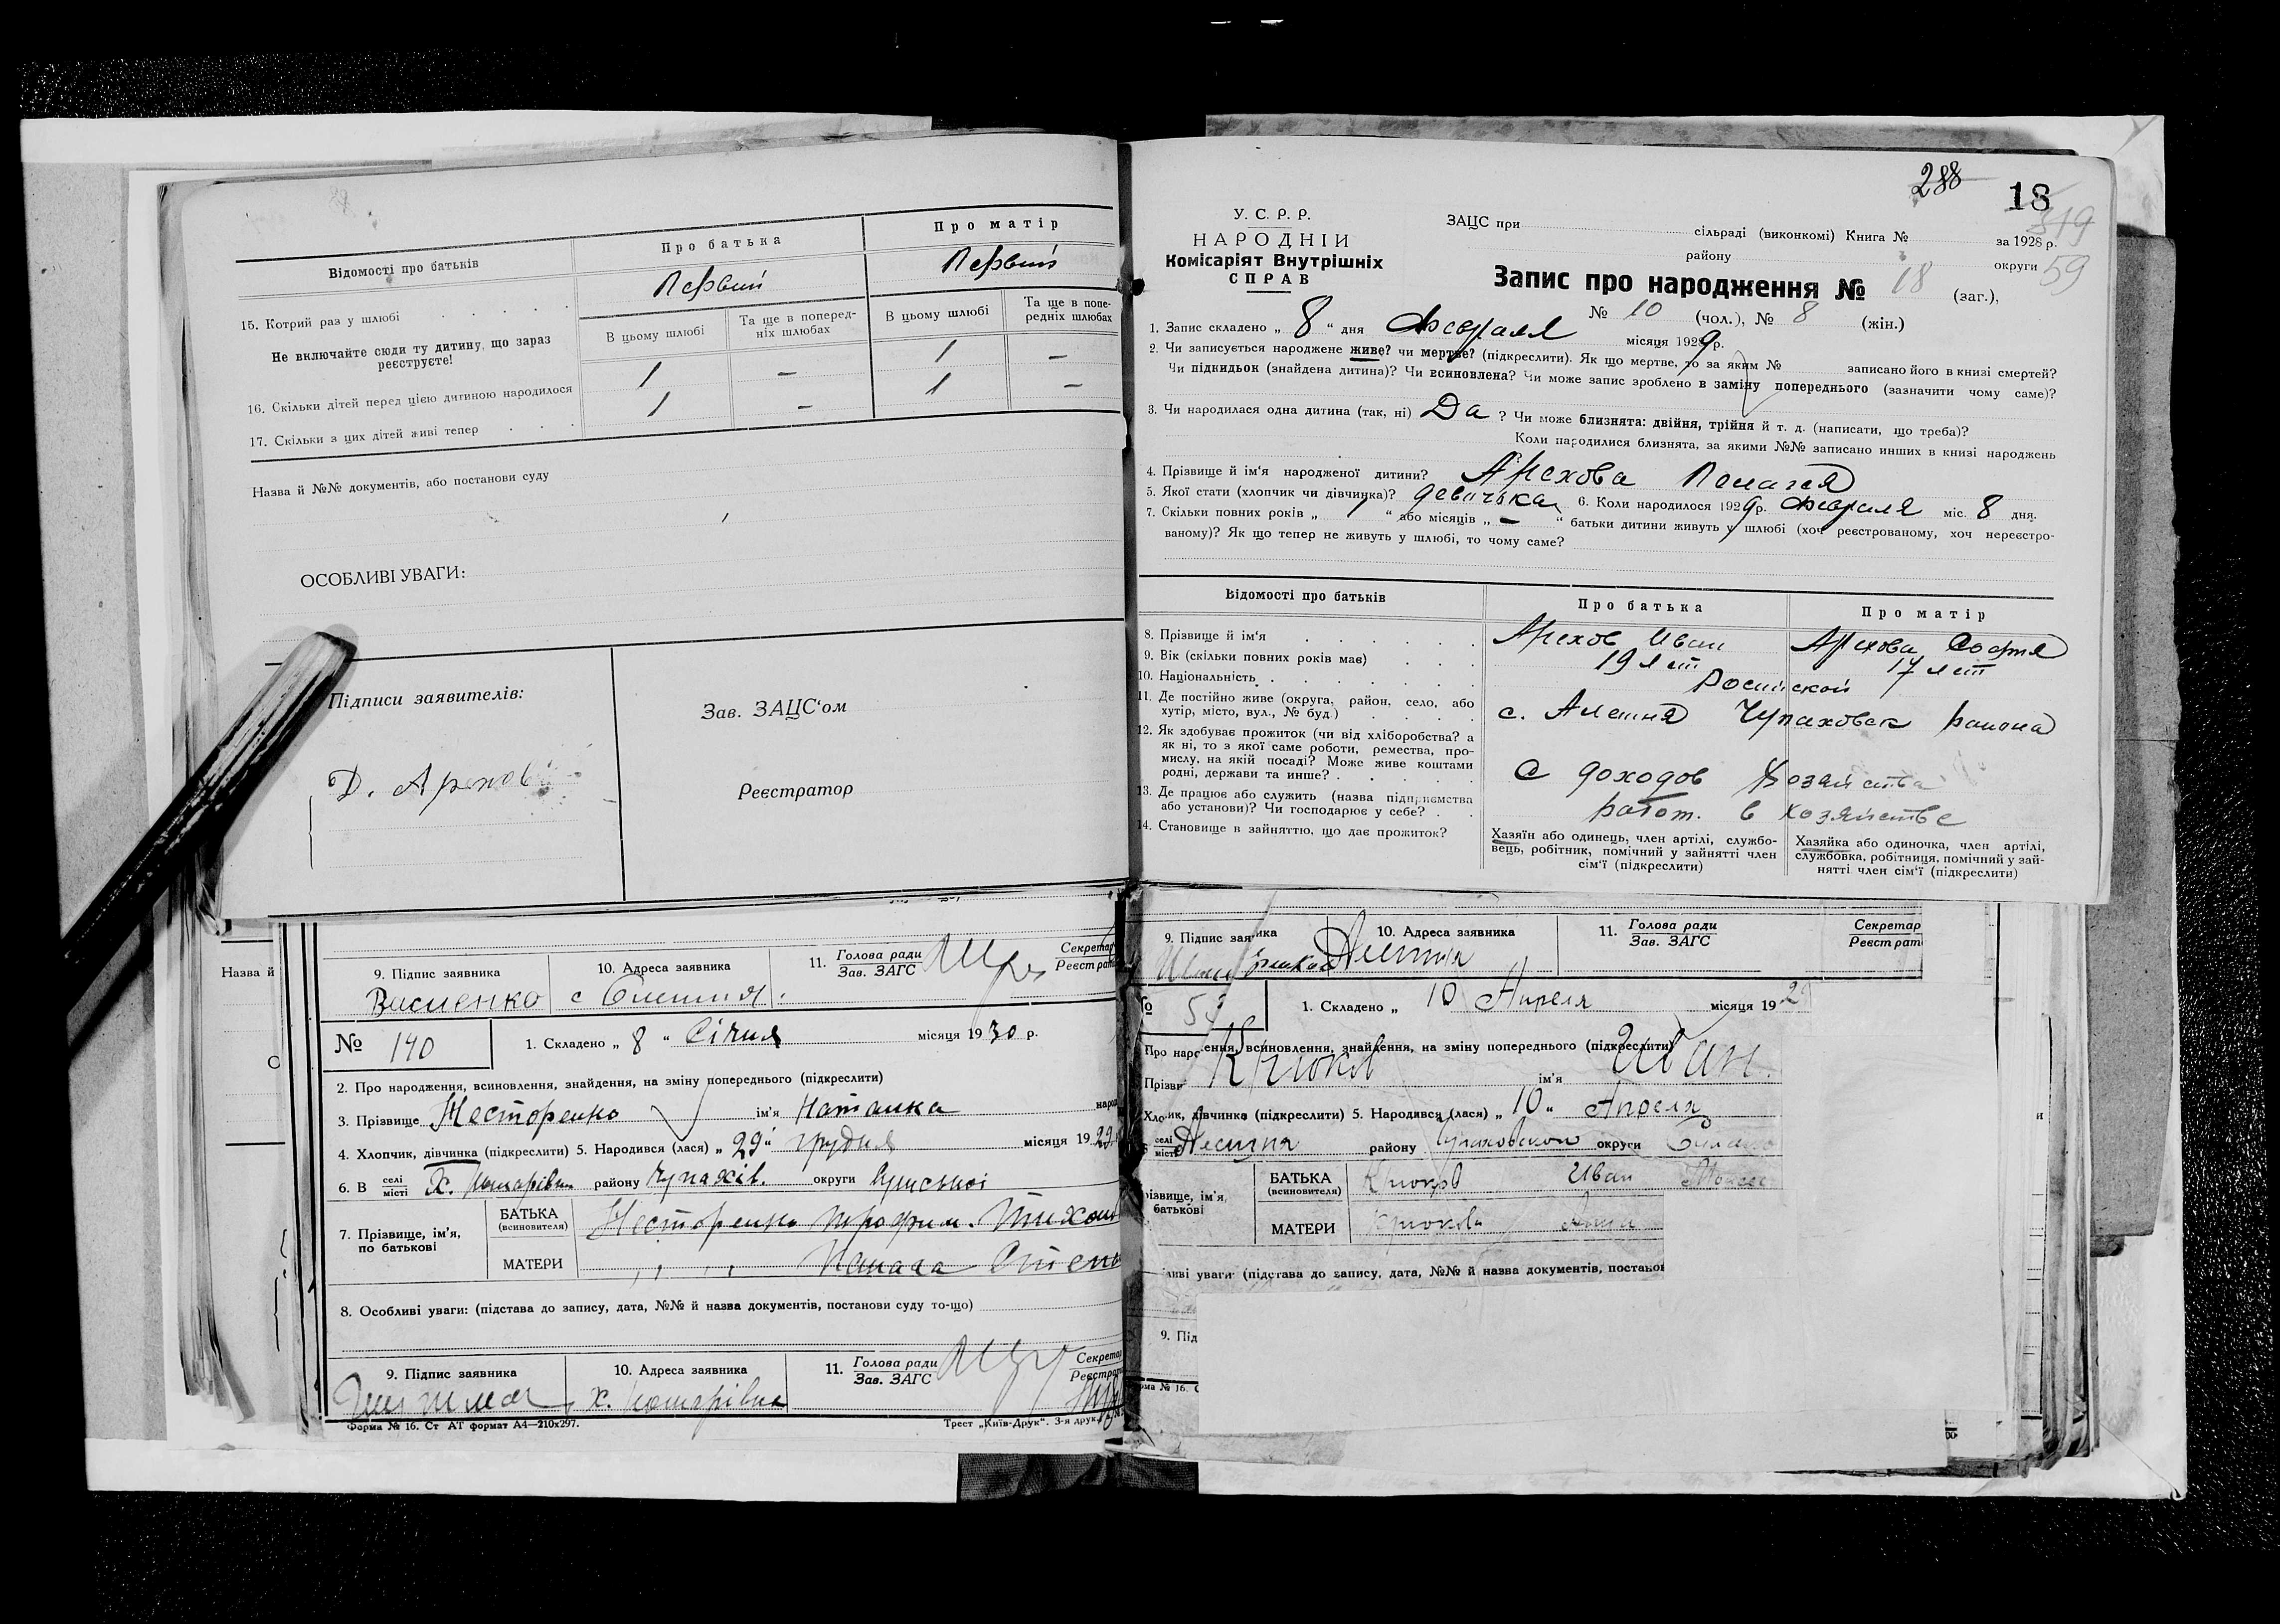 Відомості про батьків
Про батька
Про матір
15. Котрий раз у шлюбі
Первый
Первый
Не включайте сюди ту дитину, що зараз реєструєте!
В цьому шлюбі
Та ще в поперед-
ніх шлюбах
В цьому шлюбі
Та ще в попе-
редніх шлюбах
16. Скільки дітей перед цією дитиною народилося
1 — 1 —
17. Скільки з цих дітей живі тепер
1 — 1 —
Назва й №№ документів, або постанови суду
ОСОБЛИВІ УВАГИ:
Підписи заявителів:
Зав. ЗАЦС'ом
Реєстратор
288
18
319
59
У. С. Р. Р.
НАРОДНІЙ
Комісаріят Внутрішніх
СПРАВ
ЗАЦС при
сільраді (виконкомі) Книга №
за 1928 р.
району
округи
Запис про народження № 18 (заг.),
№ 10 (чол.), № 8 (жін.)
1. Запис складено „ 8 " дня Февраля місяця 1929 р.
2. Чи записується народжене живе? чи мертве? (підкреслити). Як що мертве, то за яким № записано його в книзі смертей?
Чи підкидьок (знайдена дитина)? Чи всиновлена? Чи може запис зроблено в заміну попереднього (зазначити чому саме)?
3. Чи народилася одна дитина (так, ні) Да ? Чи може близнята: двійня, трійня й т. д. (написати, що треба)?
Коли народилися близнята, за якими №№ записано инших в книзі народжень
4. Прізвище й ім'я народженої дитини? Арехова Пелагея
5. Якої стати (хлопчик чи дівчинка)? девочька 6. Коли народилося 1929 р. Февраля міс. 8 дня.
7. Скільки повних років „ 1 " або місяців „ — " батьки дитини живуть у шлюбі (хоч реєстрованому, хоч нереєстро-
ваному)? Як що тепер не живуть у шлюбі, то чому саме?
Відомості про батьків
Про батька
Про матір
8. Прізвище й ім'я
Арехов Иван
Арехова Софья
9. Вік (скільки повних років має)
19 лет
17 лет
10. Національність
11. Де постійно живе (округа, район, село, або
хутір, місто, вул., № буд.)
с. Алешня Чупаховск района
12. Як здобуває прожиток (чи від хліборобства? а
як ні, то з якої саме роботи, ремества, про-
мислу, на якій посаді? Може живе коштами
родні, держави та инше?
С доходов хозяйства
13. Де працює або служить (назва підприємства
або установи)? Чи господарює у себе?
работ. в хозяйстве
14. Становище в зайняттю, що дає прожиток?
Хазяїн або одинець, член артілі, службо-
вець, робітник, помічний у зайнятті член
сім'ї (підкреслити)
Хазяйка або одиночка, член артілі,
службовка, робітниця, помічний у зай-
нятті член сім'ї (підкреслити)
Назва й
9. Підпис заявника
10. Адреса заявника
11. Голова ради
Зав. ЗАГС
Секретар
Реєстрат
№ 140
1. Складено „ 8 " Січня місяця 1930 р.
2. Про народження, всиновлення, знайдення, на зміну попереднього (підкреслити)
3. Прізвище Несторенко ім'я Наталка
4. Хлопчик, дівчинка (підкреслити) 5. Народився (лася) „ 29 " грудня місяця 1929
6. В селі
місті
району Чупахів. округи
7. Прізвище, ім'я,
по батькові
БАТЬКА
(всиновителя)
Несторенко Трофим Тихон
МАТЕРИ
8. Особливі уваги: (підстава до запису, дата, №№ й назва документів, постанови суду то-що)
9. Підпис заявника
10. Адреса заявника
11. Голова ради
Зав. ЗАГС
Секретар
Форма № 16. Ст АТ формат А4—210х297.
Трест „Київ-Друк". 3-я друк.
9. Підпис заявника
10. Адреса заявника
11. Голова ради
Зав. ЗАГС
Секретар
Реєстрат
1. Складено „ 10 Апреля місяця 1929
ення, всиновлення, знайдення, на зміну попереднього (підкреслити)
Крюков ім'я Иван
дівчинка (підкреслити) 5. Народився (лася) „ 10 " Апреля
селі
місті
району Чупаховского округи
БАТЬКА
(всиновителя)
Крюков Иван
ізвище, ім'я,
батькові
МАТЕРИ
Крюкова Анна
уваги (підстава до запису, дата, №№ й назва документів, постанов
9. Під